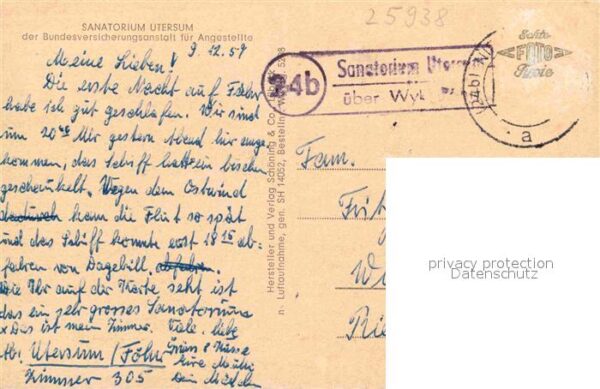 SANATORIUM UTERSUM
der Bundesversicherungsanstalt für Angestellte
9.12.59
Meine Lieben!
Die erste Nacht auf Föhr
habe ich gut geschlafen. Wir sind
um 20 Uhr gestern Abend hier ange
kommen, das Schiff hat ein bischen
geschaukelt. Wegen dem Ostwind
kam die Flut so spät
und das Schiff konnte erst 18 15 ab-
fahren von Dagebüll.
Die Ihr auf der Karte seht ist
das ein sehr grosses Sanatorium
x Das ist mein Zimmer. Viele liebe
Grüsse & Küsse
Eure Mutti
Abs. Utersum/Föhr
Zimmer 305
Hersteller und Verlag Schöning & Co.
n · Luftaufnahme, gen. SH 14052, Bestelln.
25938
24b
Sanatorium Utersum
über Wyk
(24b)
a
Echte
FOTO
Fam.
Frit
privacy protection
Datenschutz